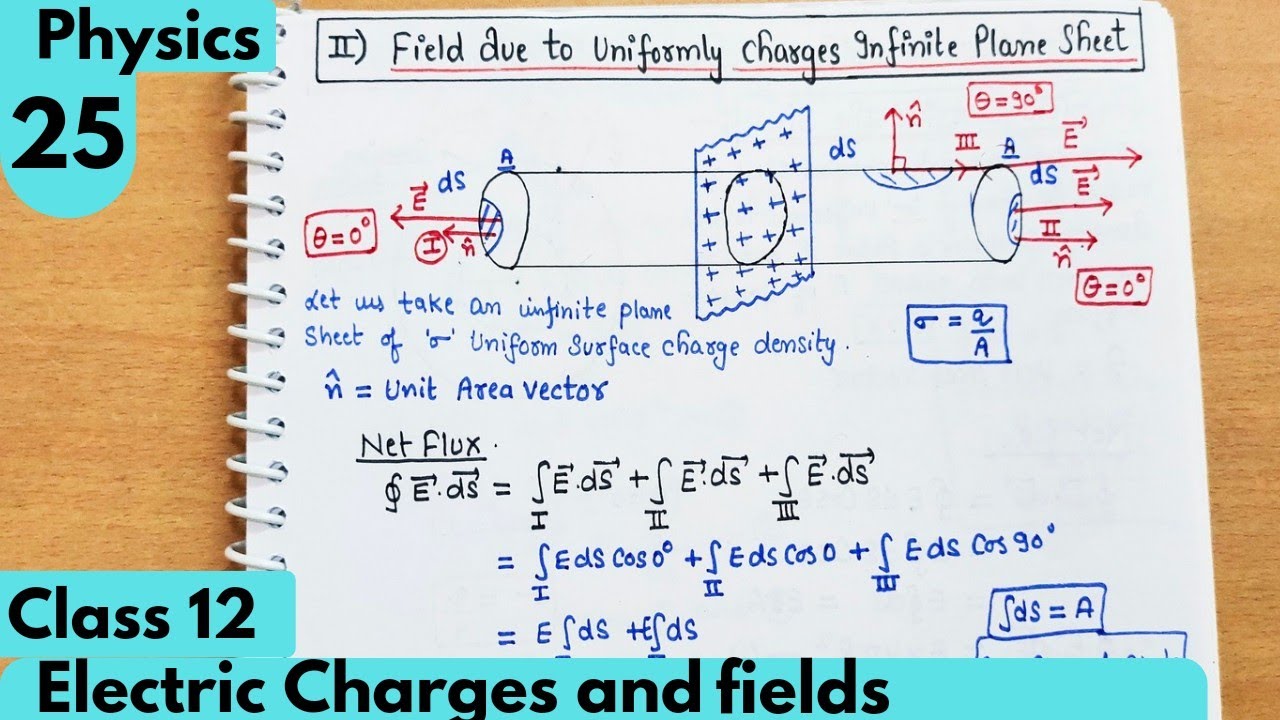 Physics
25
II) Field due to Uniformly Charges Infinite Plane Sheet
θ=90°
n̂
III
A
E⃗
ds
ds
E⃗
II
n̂
θ=0°
A
ds
E⃗
θ=0°
I
n̂
+ + + + + + + + + + + + + + + + + + + + + + + +
Let us take an infinite plane
Sheet of 'σ' Uniform Surface charge density.
σ = q/A
n̂ = Unit Area vector
Net Flux.
∮ E⃗.ds⃗ = ∫E⃗.ds⃗ + ∫E⃗.ds⃗ + ∫E⃗.ds⃗
I II III
= ∫E ds cos 0° + ∫E ds cos 0 + ∫E ds cos 90°
I II III
= E∫ds + E∫ds
∫ds = A
Class 12
Electric Charges and fields